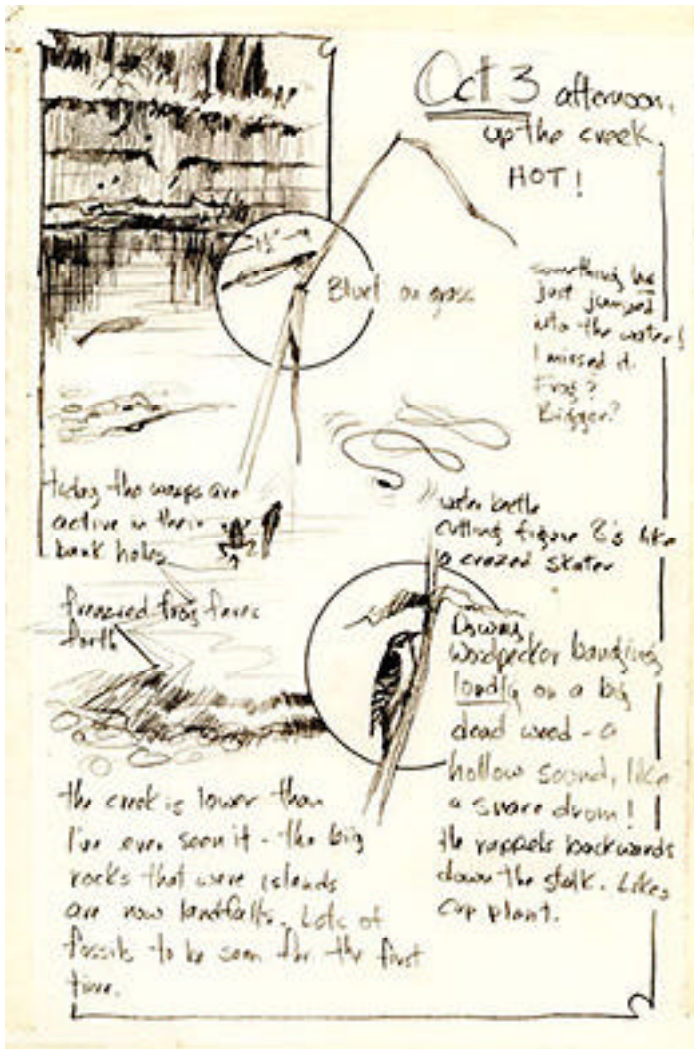 Oct 3 afternoon.
up the creek.
HOT!
1½"
Bluet on grass
something has
just jumped
into the water!
I missed it.
Frog?
Bigger?
today the wasps are
active in their
bank holes
water beetle
cutting figure 8's like
a crazed skater
frog fares
forth
Downy
Woodpecker banging
loudly on a big
dead weed - a
hollow sound, like
a snare drum!
He rappels backwards
down the stalk. Likes
cup plant.
the creek is lower than
I've ever seen it - the big
rocks that were islands
are now landfalls. Lots of
fossils to be seen for the first
time.